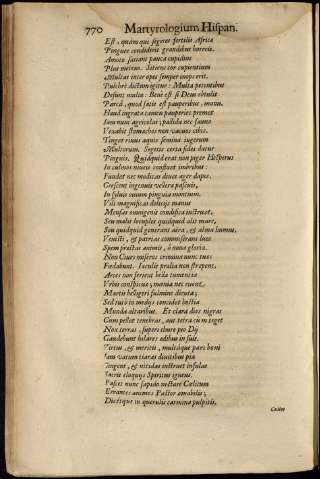 770
Martyrologium Hispan.
Est, quàm qui segetes fertilis Africæ
Pingues condiderit grandibus horreis.
Amore satiant pauca cupidine
Plus metren. Sitiens cor cupientium
Multas inter opes semper inops erit.
Pulchrè dictum igitur: Multa petentibus
Desunt multa: Benè est si Deus obtulit
Parcâ, quod satis est pauperibus, manu.
Haud ingrata tamen pauperies premet
Iam nunc agricolas; pallida nec fames
Vexabit stomachos non vacuos cibis.
Tinget riuus aquis semina iugerum
Multorum. Segetis certa fides datur
Pinguis. Quidquid erat non piger Hesperus
In culmos niueis confluet imbribus:
Fundet nec modicas diues ager dapes.
Crescent ingenuis vellera pascuis,
In siluis ouium pinguia montium.
Vili magnificas delicijs manus
Mensas munigenis condiet instruet,
Seu malit locuples quidquid alit mare,
Seu quidquid generant aëra, & alma humus.
Venisti, & patrias commiserans luce
Spem præstas animis, ô noua gloria.
Non Ciues miseros crimina nunc tuos
Fœdabunt. Iaculis prælia non strepent,
Arces non ferient bella tumentia
Vrbis conspicuæ; mœnia nec ruent
Martis belligeri fulmine diruta;
Sed tutò in medijs concidet hostia
Munda altaribus. Et clara dies nigras
Cùm pellet tenebras, aut tetra cùm teget
Nox terras, superi thure pio Dij
Gaudebunt hilares ædibus in suis.
Virtus, & meritis, multáque pars boni
Iam vatum tiaras diuitibus pia
Tingent, & nitidas instruet insulas
Sacris eloquijs Spiritus igneus.
Pascet nunc sapido nectare Cœlitum
Errantes animas Pastor amabilis;
Dictisque in querulis carmina pulpitis,
Cœleo